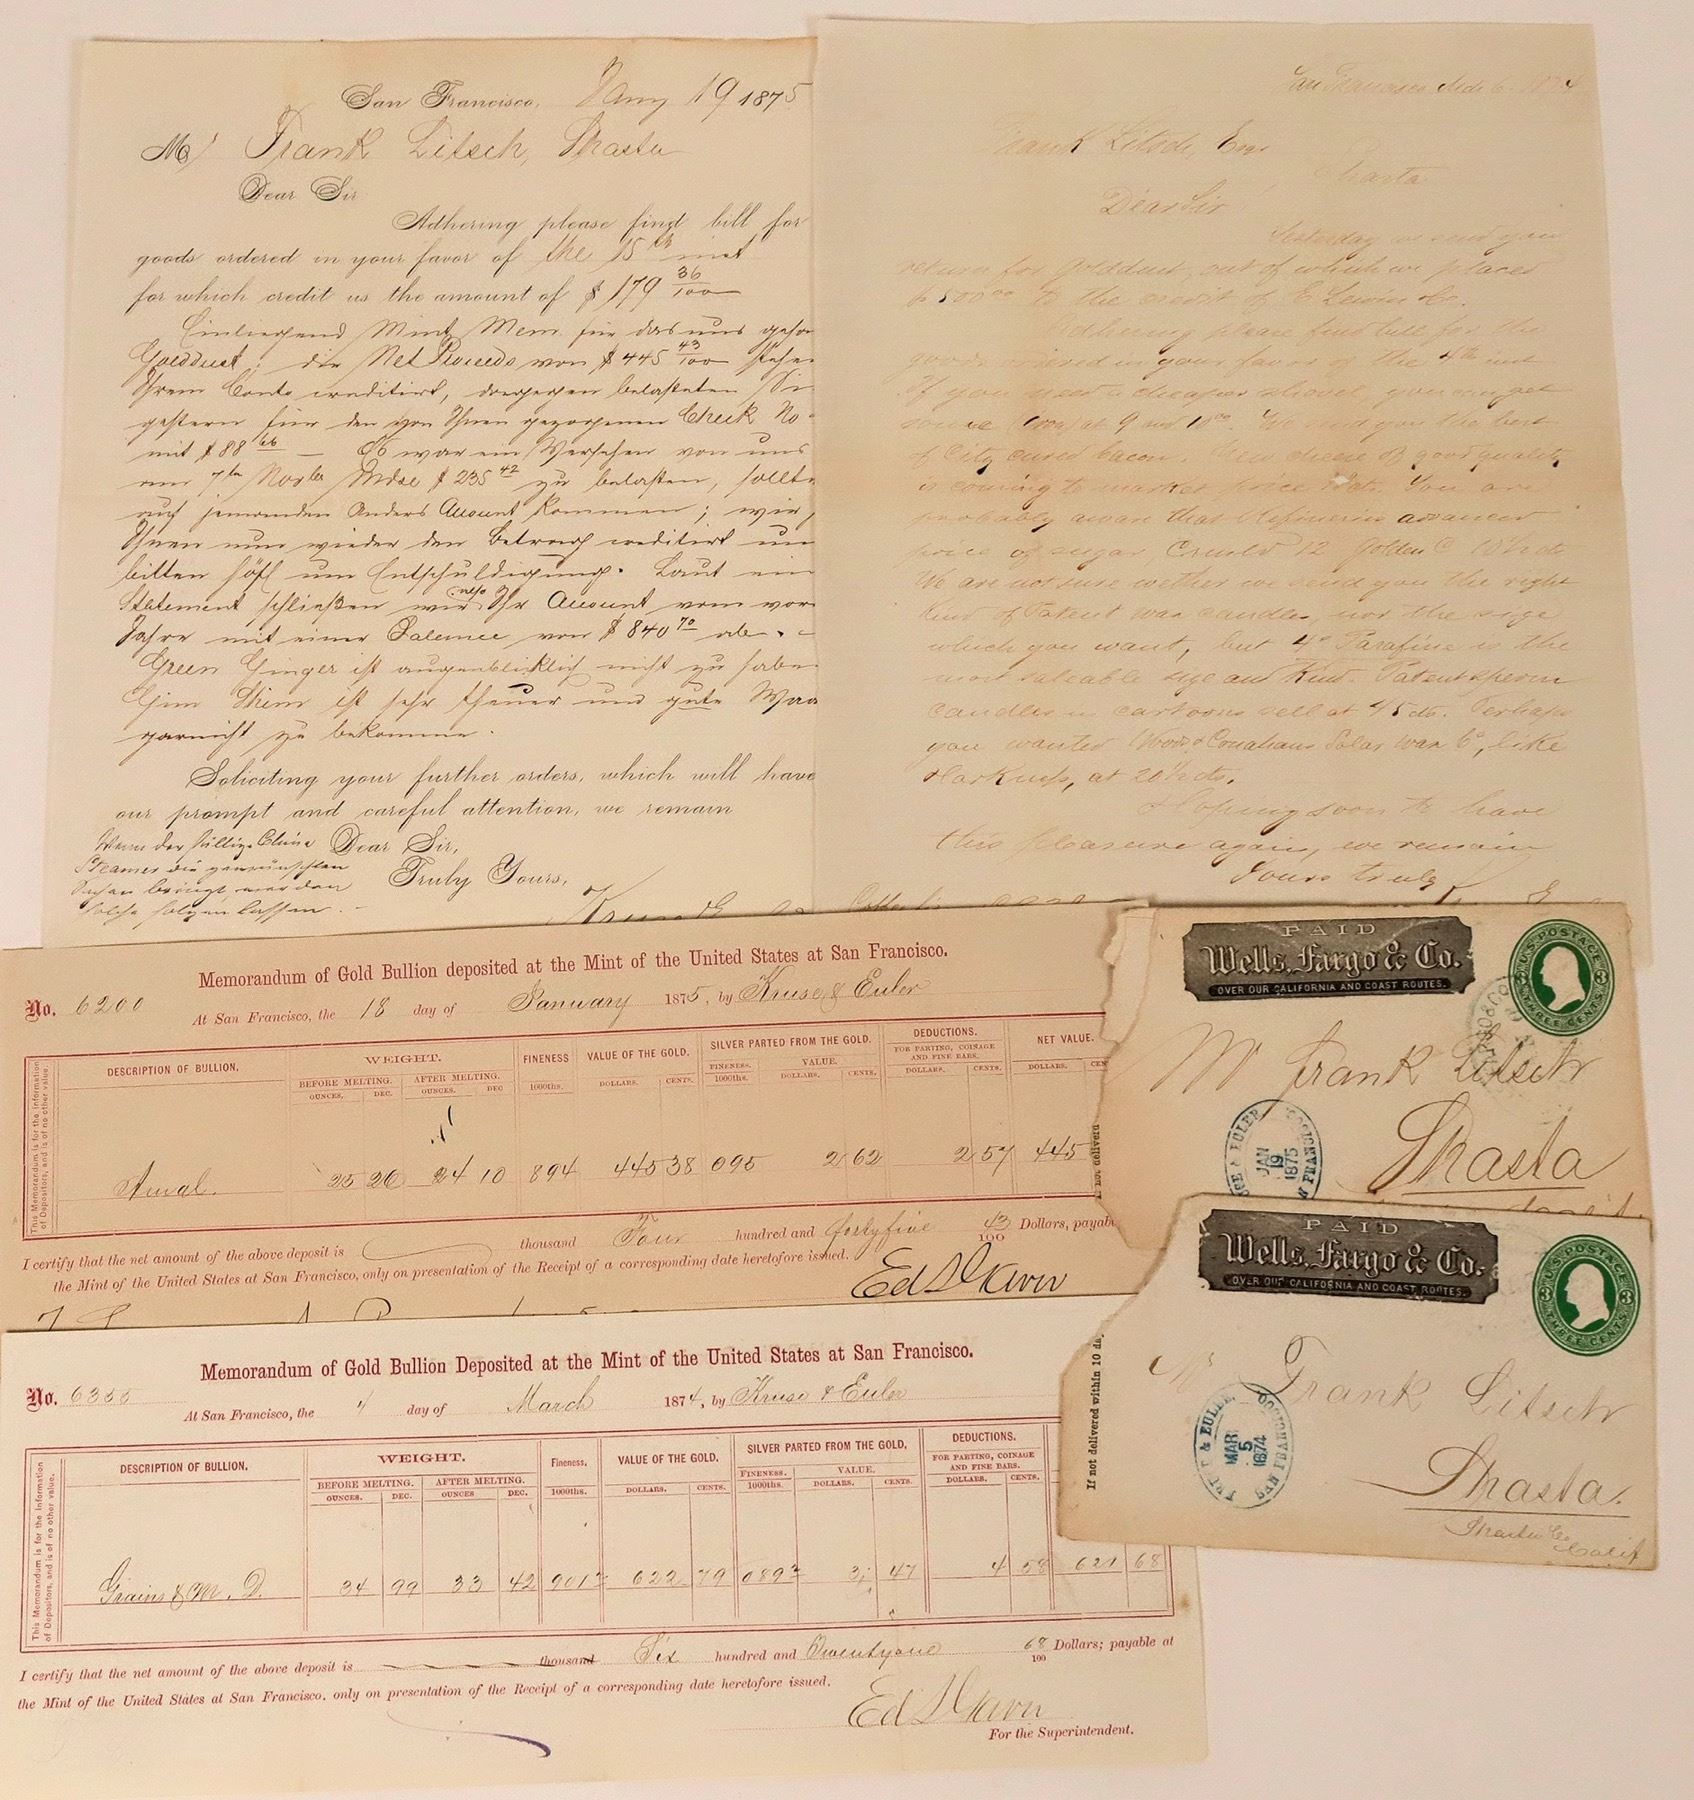 San Francisco, Jany 19 1875
Mr Frank Litsch, Shasta
Dear Sir
Adhering please find bill for
goods ordered in your favor of the 15th inst
for which credit us the amount of $ 179 36/100
Einliegend Mint Mem. für das uns
Golddust; die Net Proceeds von $ 445 43/100 stehen
Ihrem Conto creditirt, dagegen belasteten Sie
gestern für den von Ihnen gezogenen Check No
mit $ 88 66 — Es war ein Versehen von uns
7ten Novber Mdse $ 235 42 zu belasten, sollte
auf jemanden Anders Account kommen; wir
Ihnen nun wieder den Betrag creditirt
bitten höfl um Entschuldigung. Laut
Statement schließen wir also Ihr Account vom vor
Jahre mit einer Balance von $ 840 70 ab. -
Green Ginger ist augenblicklich nicht zu haben
ist sehr theuer und gute Waa
garnicht zu bekomme.
Soliciting your further orders, which will have
our prompt and careful attention, we remain
Wenn der China Dear Sir,
Steamer die gewünschten Truly Yours,
Sachen bringt werden
solche folgen lassen. -
San Francisco Mch 6. 1874
Frank Litsch, Esqr
Shasta
Dear Sir
Yesterday we send you
return for Golddust, out of which we placed
$500.00 to the credit of E Lewin & Co.
Adhering please find bill for the
goods ordered in your favor of the 4th inst
If you need a cheaper shovel, you can get
some at 9 and 10.00. We send you the best
of City cured bacon. New cheese of good quality
is coming to market price cts. You are
probably aware that Refineries advanced
price of sugar Crushed 12 Golden C 10½ cts
We are not sure wether we send you the right
kind of Patent wax candles, nor the size
which you want, but 4° Parafine is the
most saleable size and Kind. Patent sperm
candles in cartoons sell at 45 cts. Perhaps
you wanted Solar wax 6°, like
Harkness, at 20½ cts.
Hoping soon to have
this pleasure again, we remain
Yours truly
Memorandum of Gold Bullion deposited at the Mint of the United States at San Francisco.
No. 6200 At San Francisco, the 18 day of January 1875, by Kruse & Euler
This Memorandum is for the information of Depositors, and is of no other value.
DESCRIPTION OF BULLION. WEIGHT. FINENESS VALUE OF THE GOLD. SILVER PARTED FROM THE GOLD. DEDUCTIONS. NET VALUE.
BEFORE MELTING. AFTER MELTING. 1000ths. DOLLARS. CENTS. FINENESS. 1000ths. VALUE. DOLLARS. CENTS. FOR PARTING, COINAGE AND FINE BARS. DOLLARS. CENTS. DOLLARS.
OUNCES. DEC. OUNCES. DEC
Amal. 25 26 24 10 894 445 38 095 2 62 2 57 445
I certify that the net amount of the above deposit is thousand Four hundred and fortyfive 43/100 Dollars, payable
the Mint of the United States at San Francisco, only on presentation of the Receipt of a corresponding date heretofore issued.
Memorandum of Gold Bullion Deposited at the Mint of the United States at San Francisco.
No. 6355 At San Francisco, the 4 day of March 1874, by Kruse & Euler
This Memorandum is for the information of Depositors, and is of no other value.
DESCRIPTION OF BULLION. WEIGHT. Fineness. VALUE OF THE GOLD. SILVER PARTED FROM THE GOLD. DEDUCTIONS.
BEFORE MELTING. AFTER MELTING. 1000ths. DOLLARS. CENTS. FINENESS. 1000ths. VALUE. DOLLARS. CENTS. FOR PARTING, COINAGE AND FINE BARS. DOLLARS. CENTS.
OUNCES. DEC. OUNCES DEC.
Grains & M. D. 34 99 33 42 901½ 622 79 089½ 3 47 4 58 621 68
I certify that the net amount of the above deposit is thousand Six hundred and Twentyone 68/100 Dollars; payable at
the Mint of the United States at San Francisco, only on presentation of the Receipt of a corresponding date heretofore issued.
For the Superintendent.
PAID
Wells, Fargo & Co.
OVER OUR CALIFORNIA AND COAST ROUTES.
U.S. POSTAGE
3 3
THREE CENTS
Mr Frank Litsch
Shasta
JAN
19
1875
If not delivered
PAID
Wells, Fargo & Co.
OVER OUR CALIFORNIA AND COAST ROUTES.
U.S. POSTAGE
3 3
THREE CENTS
Mr Frank Litsch
Shasta.
Shasta Co
Calif
MAR
5
1874
SAN FRANCISCO
If not delivered within 10 da